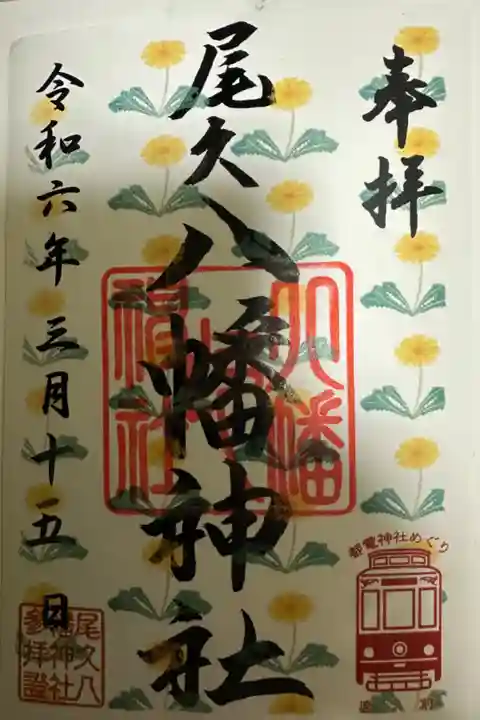 奉拝
尾久八幡神社
令和六年三月十五日
八幡神社
都電神社めぐり
尾久八幡神社参拝證